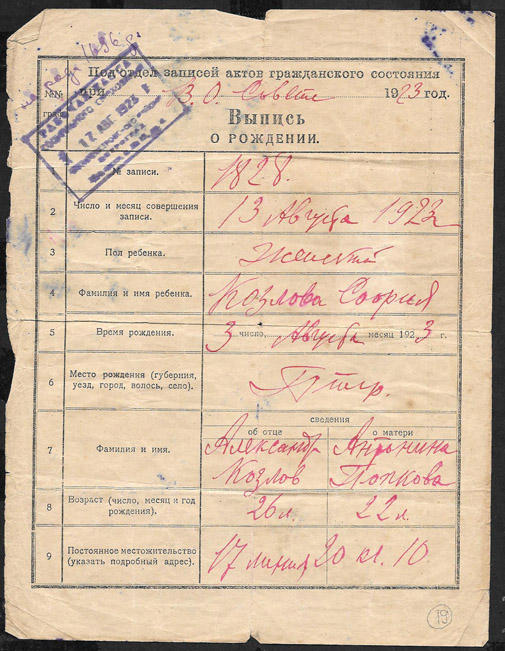 Подотдел записей актов гражданского состояния
при В. О. Совете 1923 год.
№№
Выпись
О РОЖДЕНИИ.
17 АВГ 1928
№ записи. 1828.
2 Число и месяц совершения записи. 13 Августа 1923
3 Пол ребенка. Женский
4 Фамилия и имя ребенка. Козлова София
5 Время рождения. 3 число, Августа месяц 1923 г.
6 Место рождения (губерния, уезд, город, волось, село). Птгр.
сведения
об отце о матери
7 Фамилия и имя. Александр Козлов Антонина Попкова
8 Возраст (число, месяц и год рождения). 26 л. 22 л.
9 Постоянное местожительство (указать подробный адрес). 17 линия 20 кв. 10
19